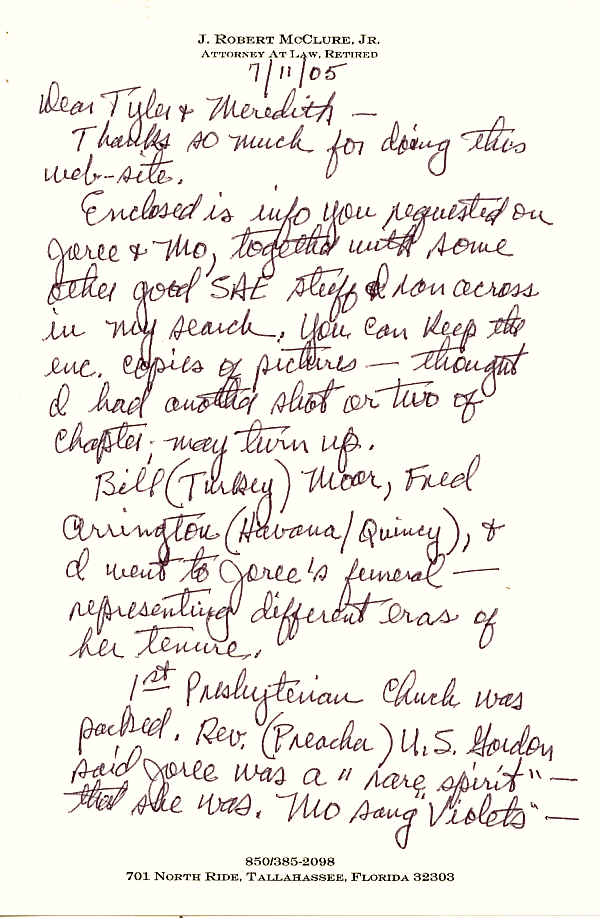 J. Robert McClure, Jr.
Attorney At Law, Retired
7/11/05
Dear Tyler & Meredith —
Thanks so much for doing this
web-site.
Enclosed is info you requested on
Joree & Mo, together with some
other good SAE stuff I ran across
in my search. You can keep the
enc. copies of pictures — thought
I had another shot or two of
chapter; may turn up.
Bill (Turkey) Moor, Fred
Arrington (Havana/Quincy), &
I went to Joree's funeral —
representing different eras of
her tenure.
1st Presbyterian Chuch was
packed. Rev. (Preacher) U.S. Gordon
said Joree was a "rare spirit" —
that she was. Mo sang "Violets" —
850/385-2098
701 North Ride, Tallahassee, Florida 32303